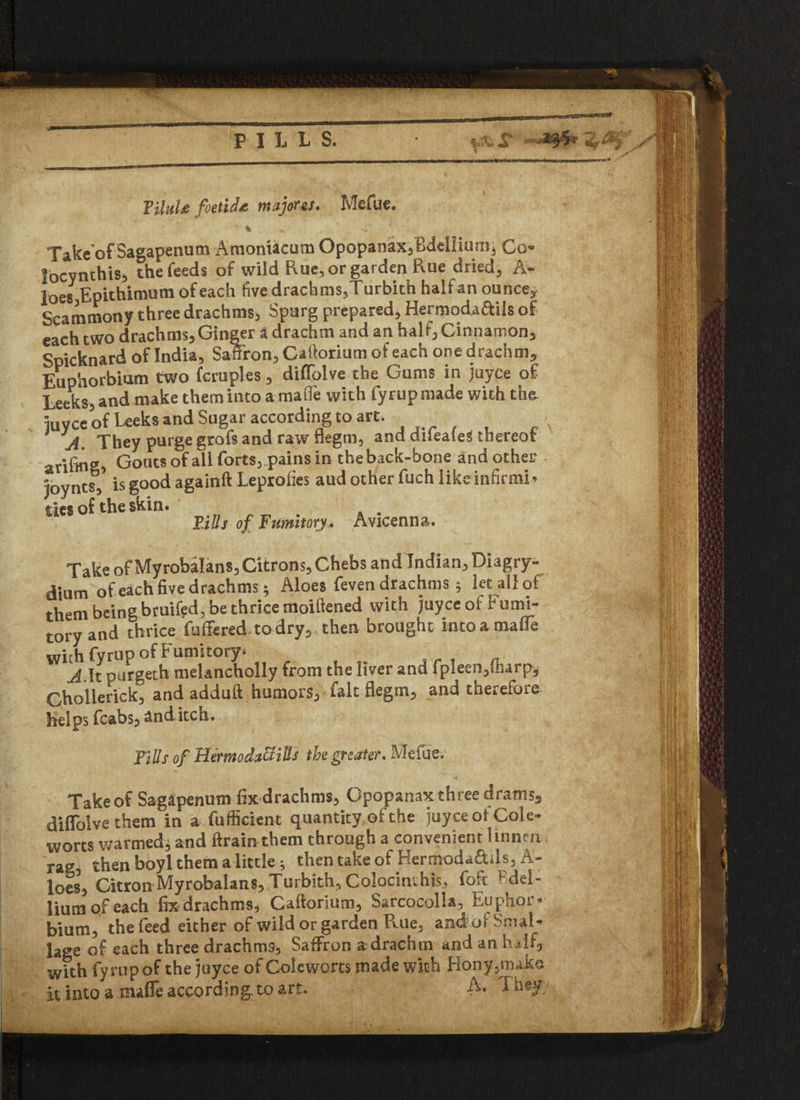 PILLS.
Pilulæ fœtidæ majores. Mesue.
Take of Sagapenum Amoniacum Opopanax, Bdellium, Co-
locynthis, the seeds of wild Rue, or garden Rue dried, A-
loes, Epithimum of each five drachms, Turbith half an ounce,
Scammony three drachms, Spurg prepared, Hermodactils of
each two drachms, Ginger a drachm and an half, Cinnamon,
Spicknard of India, Saffron, Castorium of each one drachm,
Euphorbium two scruples, dissolve the Gums in juyce of
Leeks, and make them into a masse with syrup made with the
juyce of Leeks and Sugar according to art.
A. They purge gross and raw flegm, and diseases thereof
arising, Gouts of all sorts, pains in the back-bone and other
joynts, is good against Leprosies aud other such like infirmi-
ties of the skin.
Pills of Fumitory. Avicenna.
Take of Myrobalans, Citrons, Chebs and Indian, Diagry-
dium of each five drachms; Aloes seven drachms; let all of
them being bruised, be thrice moistened with juyce of Fumi-
tory and thrice suffered to dry, then brought into a masse
with syrup of Fumitory.
A. It purgeth melancholly from the liver and spleen, sharp,
Chollerick, and addust humors, salt flegm, and therefore
helps scabs, and itch.
Pills of Hermodactills the greater. Mesue.
Take of Sagapenum six drachms, Opopanax three drams,
dissolve them in a sufficient quantity of the juyce of Cole-
worts warmed, and strain them through a convenient linnen
rag, then boyl them a little; then take of Hermodactils, A-
loes, Citron Myrobalans, Turbith, Colocinthis, soft Bdel-
lium of each six drachms, Castorium, Sarcocolla, Euphor-
bium, the seed either of wild or garden Rue, and of Smal-
lage of each three drachms, Saffron a drachm and an half,
with syrup of the juyce of Coleworts made with Hony, make
it into a masse according to art. A. They